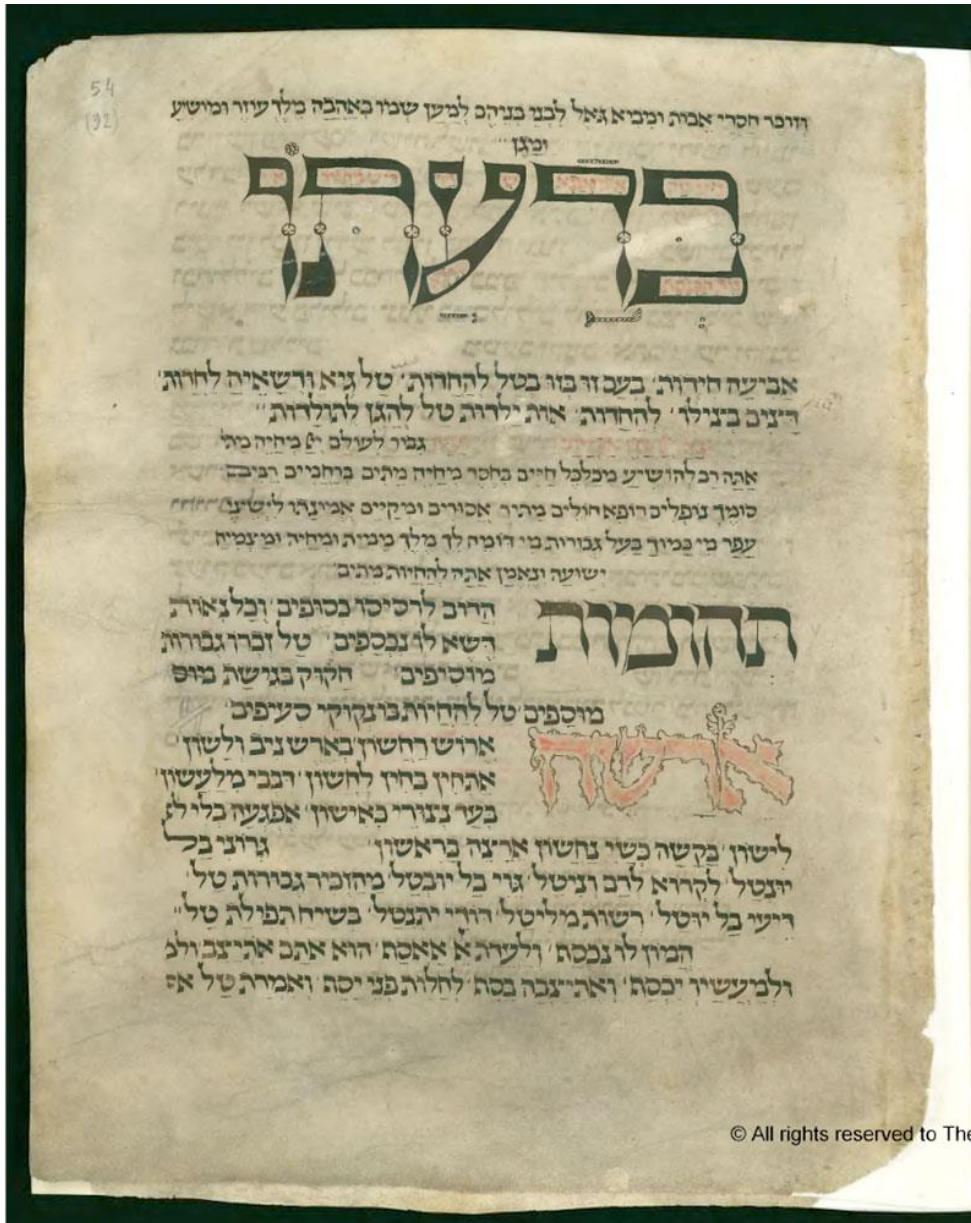 54
(92)
וזוכר חסדי אבות ומביא גאל לבני בניהם למען שמו באהבה מלך עוזר ומושיע
ומגן
בדעתו
אביעה חידות בעם זו בזו בטל להחדות טל גיא ודשאיה לחדות
דצים בצילו להחדות אות ילדות טל להגן לתולדות
גבור לעולם יי מחיה מתי
אתה רב להושיע מכלכל חיים בחסד מחיה מתים ברחמים רבים
סומך נופלים רופא חולים מתיר אסורים ומקיים אמונתו לישיני
עפר מי כמוך בעל גבורות מי דומה לך מלך ממית ומחיה ומצמיח
ישועה ונאמן אתה להחיות מתים
תהומות
הדום לרסיסו כסופים וכל נאות
דשא לו נכספים טל זכרו גבורות
מוסיפים חקוק בגישת מוס
מוספים טל להחיות בו נקוקי סעיפים
ארשה
ארוש רחשון בארש ניב ולשון
אתחין בחין לחשון דגבי מלעשון
בעד נצורי כאישון אפגעה בלי לא
לישון בקשה כשי נחשון ארצה בראשון גרוני בל
יונטל לקרוא לרם וניטל גוי בל יובטל מהזכיר גבורות טל
ריעי בל יוטל רשות מליטל דורי יתנטל בשיח תפילת טל
המון לו נמסת ולעדת א אאסת הוא אתכ אתיצב ולמ
ולמעשיו יכסת ואתיצבה בסת לחלות פני יסת ואמירת טל אס
© All rights reserved to The